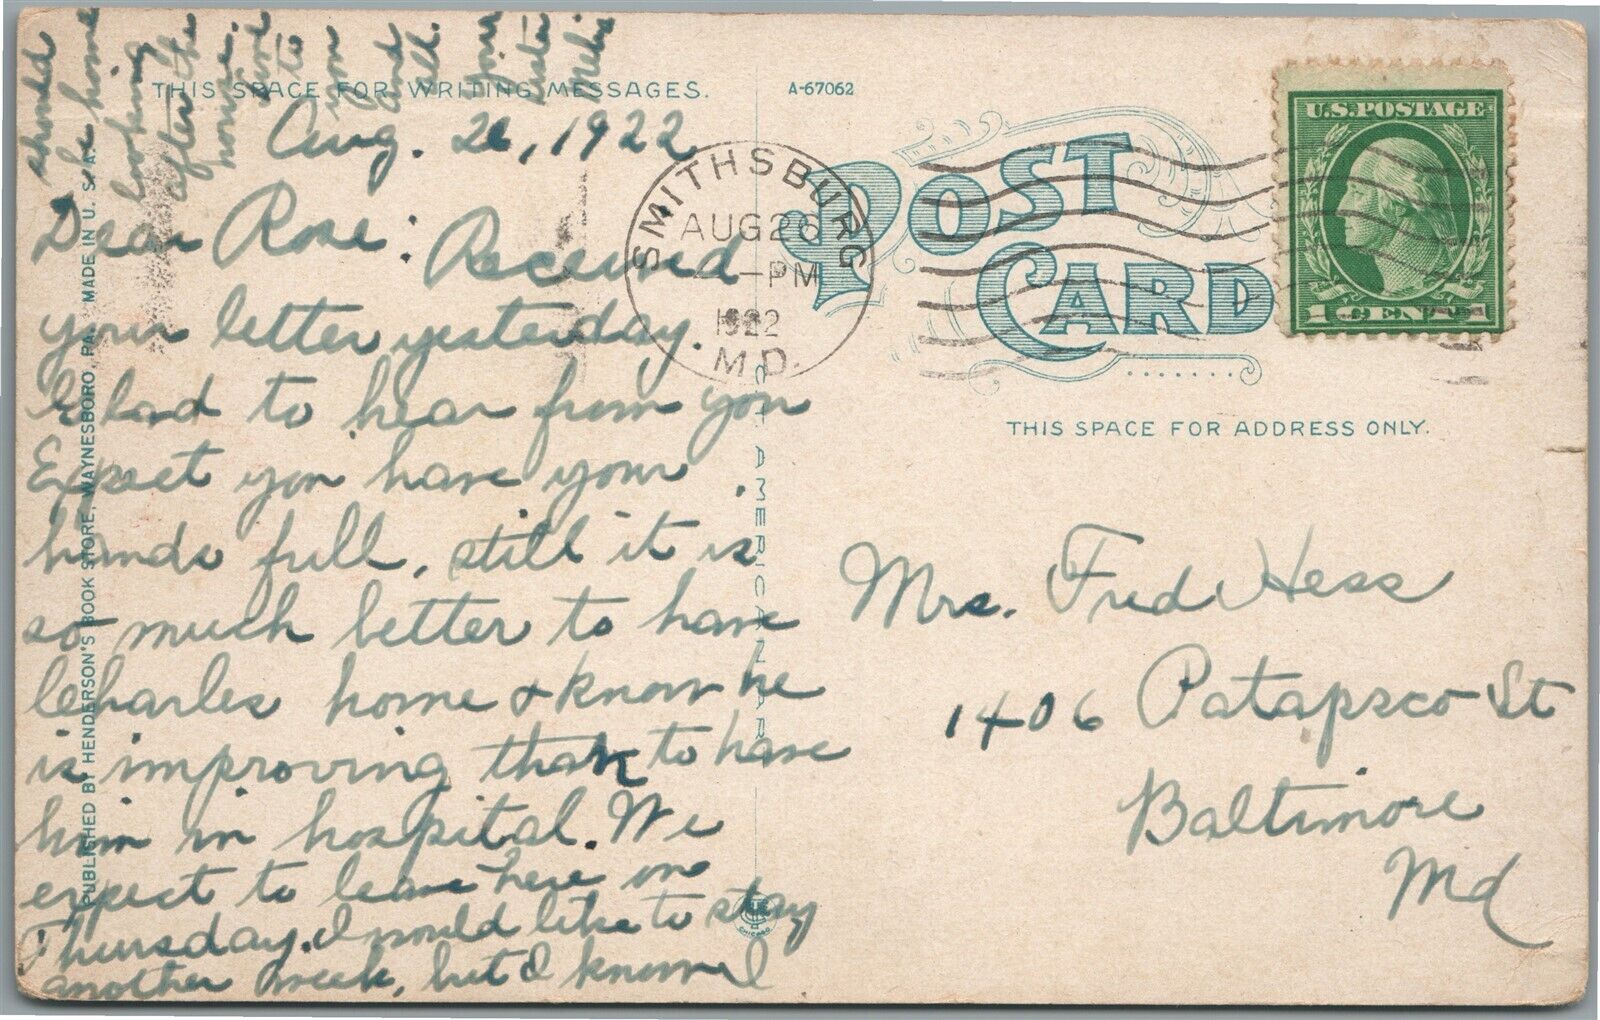 THIS SPACE FOR WRITING MESSAGES.
A-67062
Aug. 26, 1922
Dear Rose: Received
your letter yesterday.
Glad to hear from you
Expect you have your
hands full, still it is
so much better to have
Charles home & know he
is improving than to have
him in hospital. We
expect to leave here on
Thursday. I would like to stay
another week, but I know I
should
be home
looking
after the
house.
Love
to
you
and
all.
Your
Sister
PUBLISHED BY HENDERSON'S BOOK STORE, WAYNESBORO, PA. MADE IN U. S. A.
C. T. AMERICAN ART
CHICAGO
SMITHSBURG
AUG 26
-PM
1922
MD.
POST
CARD
U.S. POSTAGE
1 CENT 1
THIS SPACE FOR ADDRESS ONLY.
Mrs. Fred Hess
1406 Patapsco St
Baltimore
Md